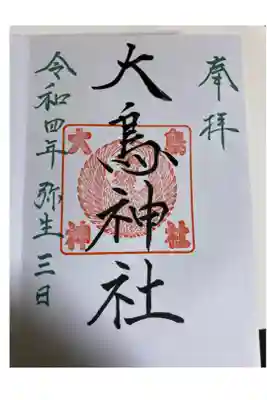 奉拝
大鳥神社
大鳥神社
令和四年 弥生三日